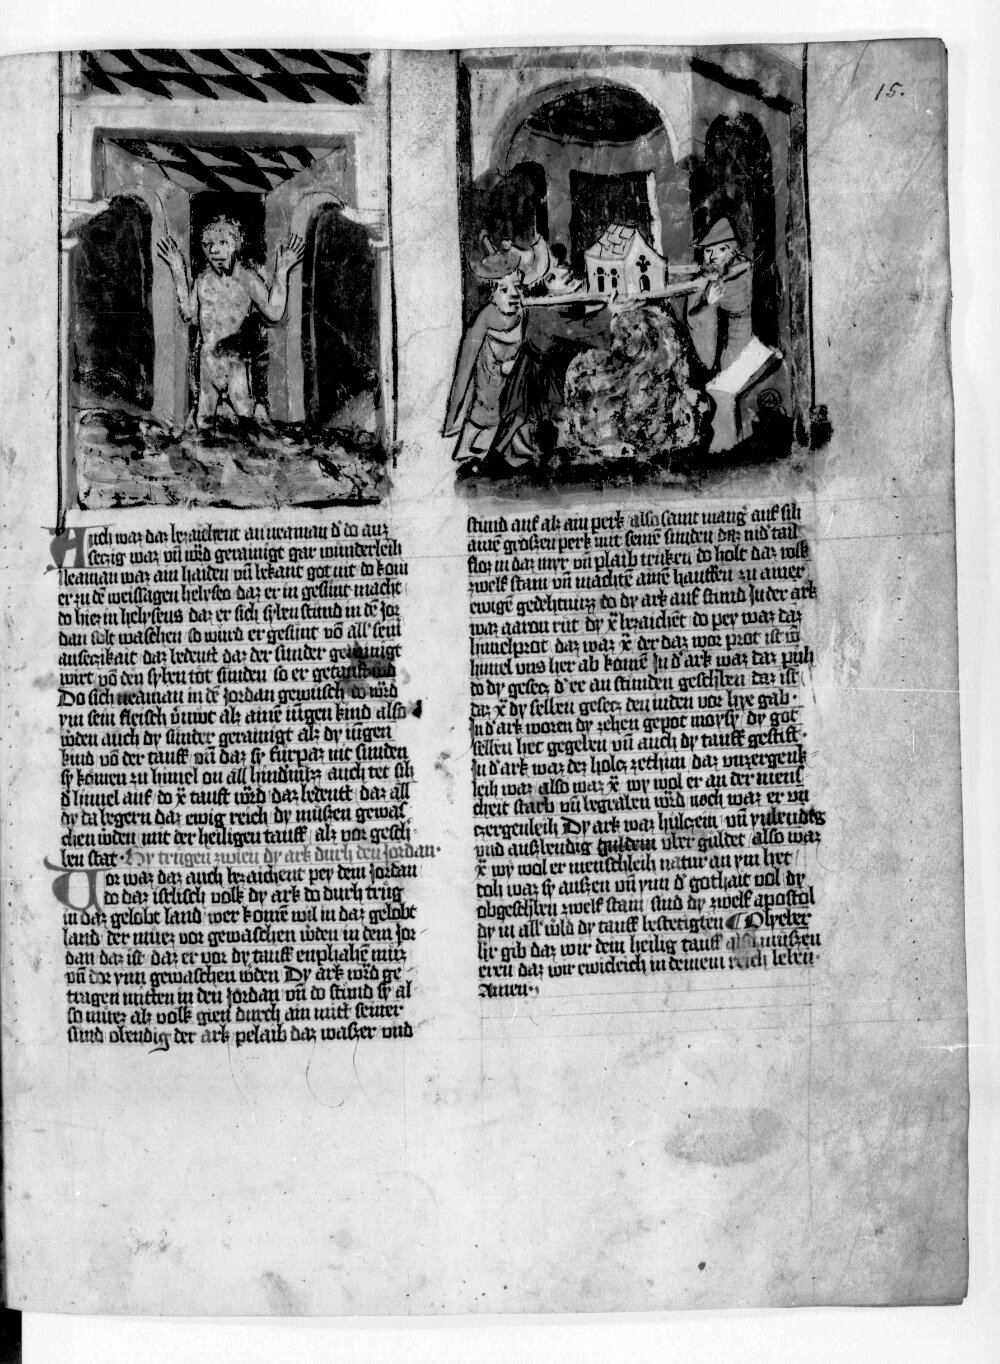 15.
Auch waz daz bezaichent an neaman d' do auz
seczig waz vn̄ w̄rd gerainigt gar wunderleih
Neaman waz ain haiden vn̄ bekant got nit do kom
er zu dē weissagen helyseo daz er in gesunt macht
do hiez in helyseus daz er sich syben stund in dē Jor
dan solt waschen so wurd er gesunt vō all' sein'
auseczikait daz bedeutt daz der sunder gerainigt
wirt vō den syben tot sunden so er getauft wird
Do sich neaman in dē Jordan gewusch do w̄rd
ym sein fleisch v'nuwt alz ainē iūgen kind also
w̄den auch dy sunder gerainigt alz dy iūgen
kind vō der tauff vn̄ daz sy furpaz mit sunden
sy komen zu himel on all hindnuzz auch tet sih
d' himel auf do x̄ tauft w̄rd daz bedeutt daz all
dy da begern daz ewig reich dy muszen gewas
chen w̄den mit der heiligen tauff alz vor gesch
ben stat. Dy trugen zwien dy ark durch den Jordan.
Vor waz daz auch bezaichent pey dem Jordan
do daz isrlisch volk dy ark do durch trūg
in daz gelobt land wer komē wil in daz gelobt
land der muez vor gewaschen w̄den in dem Jor
dan daz ist daz er vor dy tauff enphahē muz
vn̄ dor ynn gewaschen w̄den Dy ark w̄rd ge
tragen mitten in den Jordan vn̄ do stund sy al
so muez alz volk gien durch ain mitt' seiner
sund obendig der ark pelaib daz waszer vnd
stund auf alz ain perk also samt mang' auf sih
ainē groszen perk mit seinē sunden daz nid' tail
floz in daz myr vn̄ plaib truken do holt daz volk
zwelf stain vn̄ machtē ainē hauffen zu ainer
ewigē gedehtnuzz do dy ark auf stund Jn der ark
waz aaron rut dy x̄ bezaichēt do pey waz daz
himelprot daz waz x̄ der daz wor prot ist vō
himel vns her ab komē Jn d' ark waz daz puh
do dy gesecz d' ee an stunden geschben daz ist
daz x̄ dy selben gesecz den iuden vor hye gab.
Jn d' ark woren dy zehen gepot moysy dy got
selben het gegeben vn̄ auch dy tauff gestift.
Jn d' ark waz der holcz zethim daz vnzergenk
leih waz also waz x̄ wy wol er an der mens
cheit starb vn̄ begraben w̄rd noch waz er vn
czergenleih Dy ark waz hulczein vn̄ ynbendig
vnd auszbendig guldem vber guldet also waz
x̄ wy wol er menschleih natur an ym het
doh waz sy auszen vn̄ ynn d' gothait vol dy
obgeschben zwelf stain sind dy zwelf apostol
dy in all' w̄ld dy tauff bestetigten O herer
hr gib daz wir dein heilig tauff also muszen
eren daz wir ewicleich in deinem reich leben.
Amen.